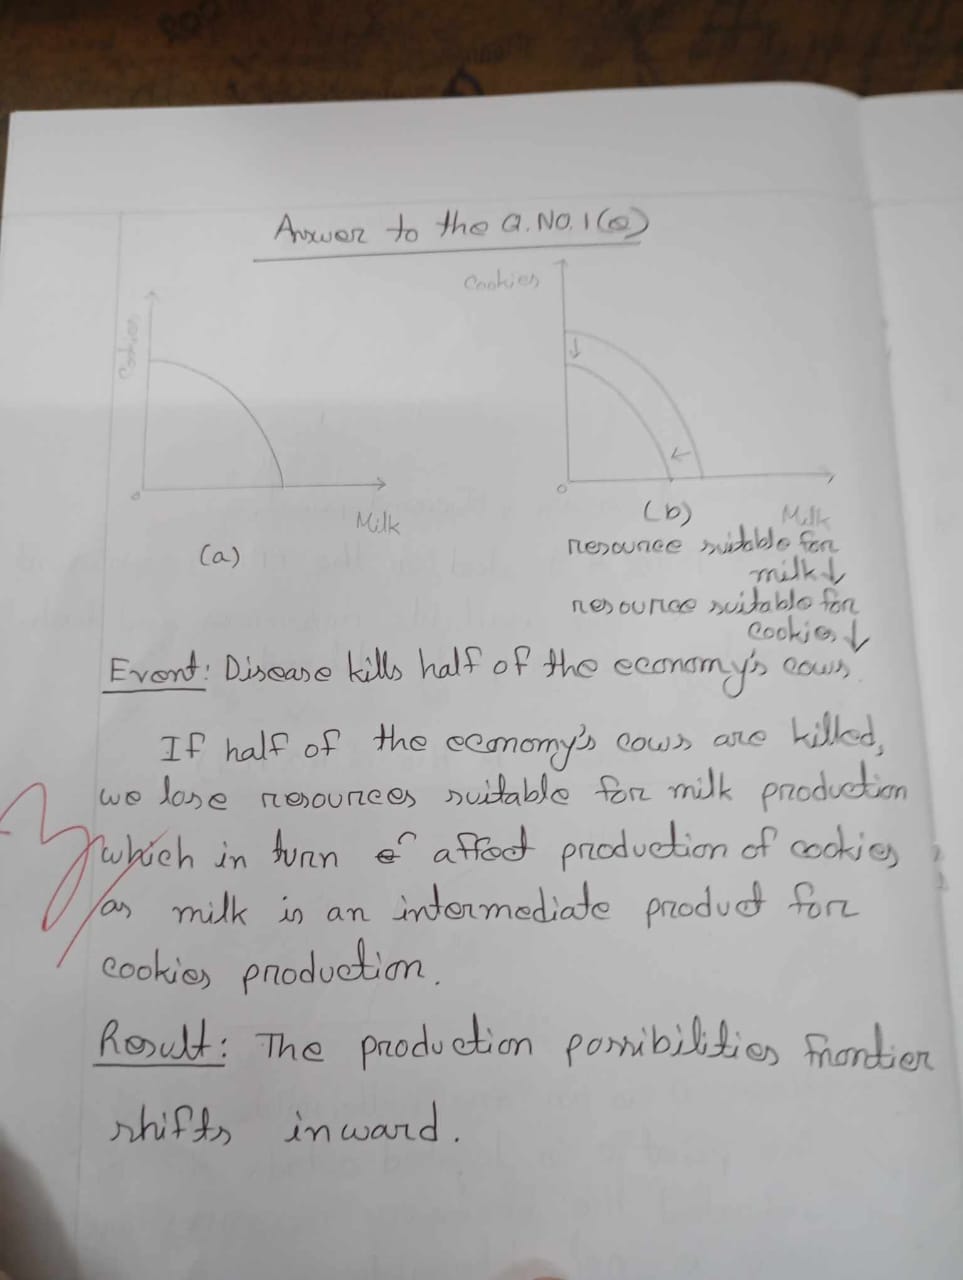 Answer to the Q. NO. 1(e)
Cookies
Milk
(a)
Cookies
Milk
(b)
resource suitable for
milk↓
resource suitable for
cookies↓
Event: Disease kills half of the economy's cows
If half of the economy's cows are killed,
we lose resources suitable for milk production
which in turn affect production of cookies
as milk is an intermediate product for
cookies production.
Result: The production possibilities frontier
shifts inward.